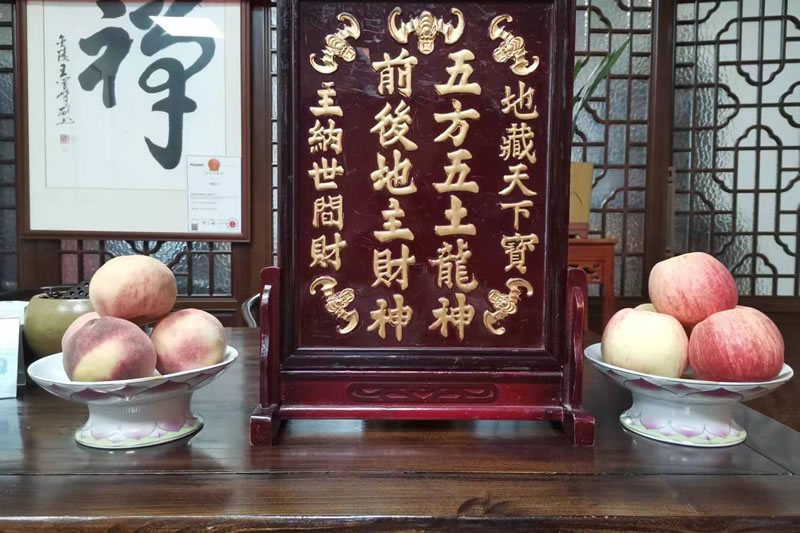 地藏天下寶
五方五土龍神
前後地主財神
主納世間財
禅